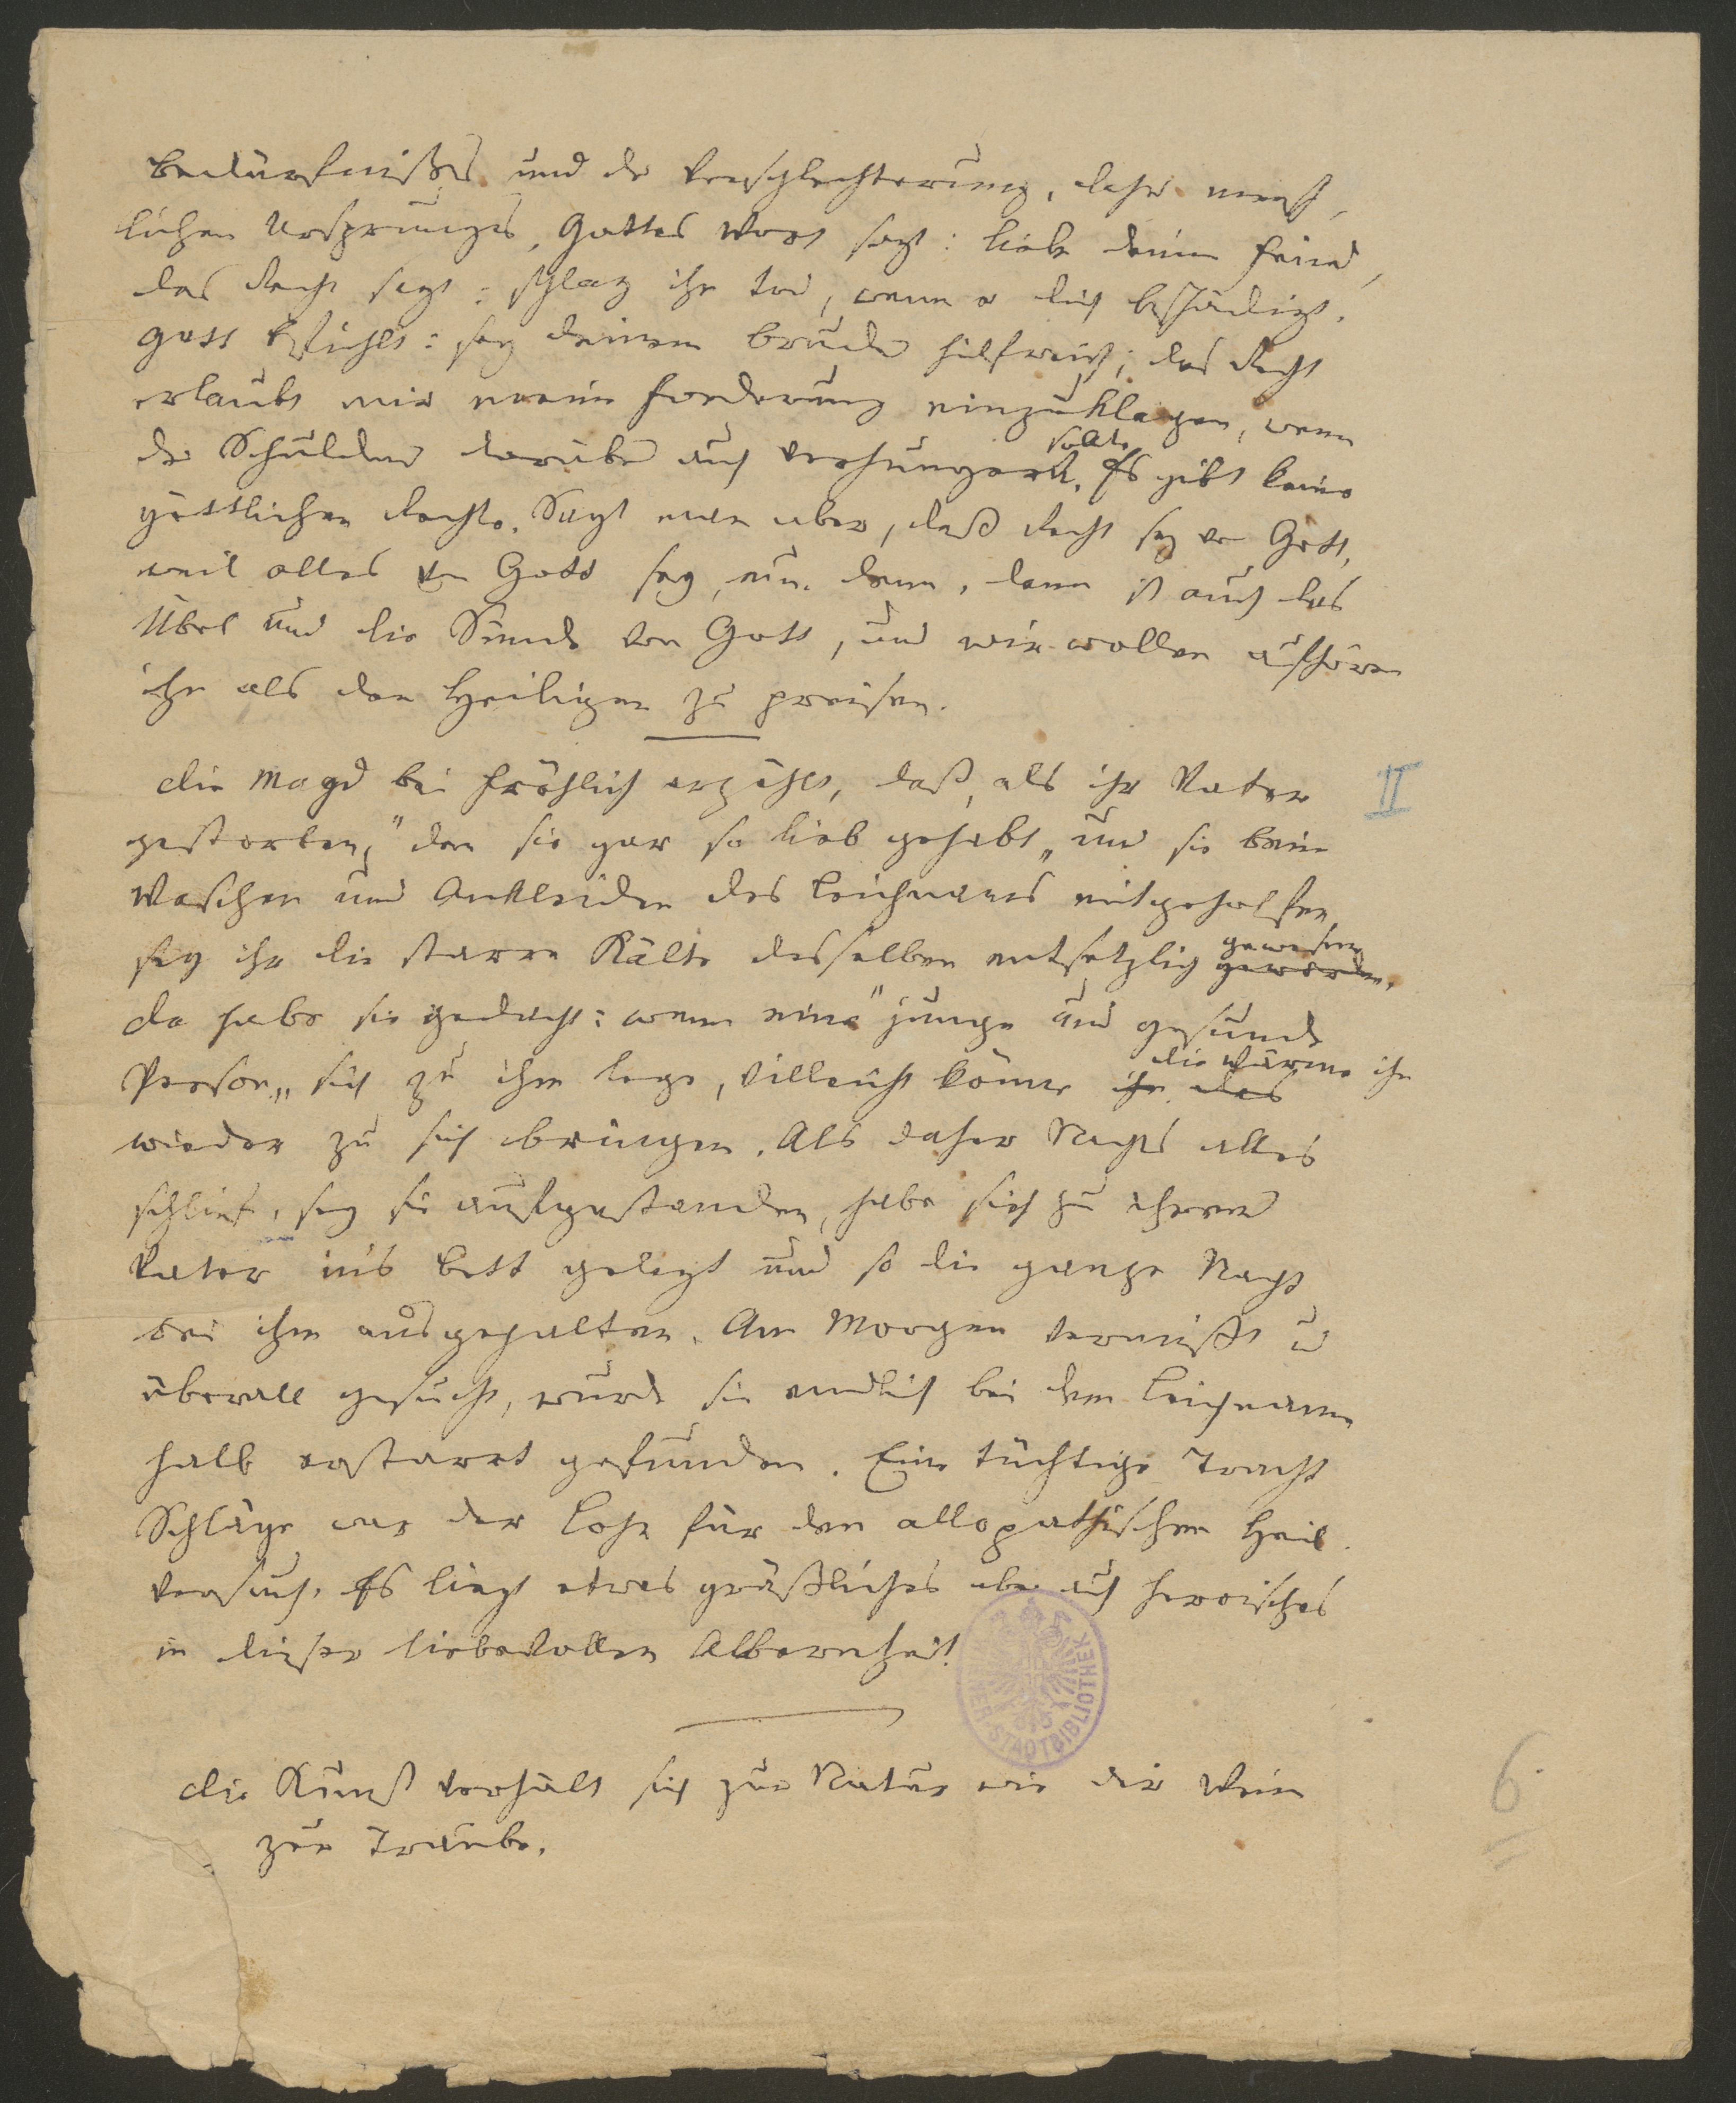 Bedürfnißes und der Verschlechterung, daher mensch-
lichen Ursprunges. Gottes Wort sagt: liebe deinen Feind,
das Recht sagt: schlag ihn tod, wenn er dich beschädigt.
Gott befiehlt: sey deinem Bruder hilfreich; das Recht
erlaubt mir meine Forderung einzuklagen, wenn
der Schuldner darüber auch verhungern sollte. Es gibt keine
göttlichen Rechte. Sagt man aber, das Recht sey von Gott,
weil alles von Gott sey, nun denn, dann ist auch das
Übel und die Sünde von Gott, und wir wollen aufhören
ihn als den Heiligen zu preisen.
Die Magd bei Fröhlich erzählt, daß, als ihr Vater
II
gestorben, „den sie gar so lieb gehabt" und sie beim
Waschen und Ankleiden des Leichnams mitgeholfen,
sey ihr die starre Kälte desselben entsetzlich geworden gewesen.
Da habe sie gedacht: wenn eine „junge und gesunde
Person" sich zu ihm lege, villeicht könne ihn das die Wärme ihn
wieder zu sich bringen. Als daher Nachts alles
schlief, sey sie aufgestanden, habe sich zu ihrem
Vater in's Bett gelegt und so die ganze Nacht
bei ihm ausgehalten. Am Morgen vermißt u
überall gesucht, wurde sie endlich bei dem Leichnam
halb erstarrt gefunden. Eine tüchtige Tracht
Schläge war der Lohn für den allopathischen Heil-
versuch. Es liegt etwas gräßliches aber auch heroisches
in dieser liebevollen Albernheit!
Die Kunst verhält sich zur Natur wie der Wein
zur Traube.
6.
STADTBIBLIOTHEK